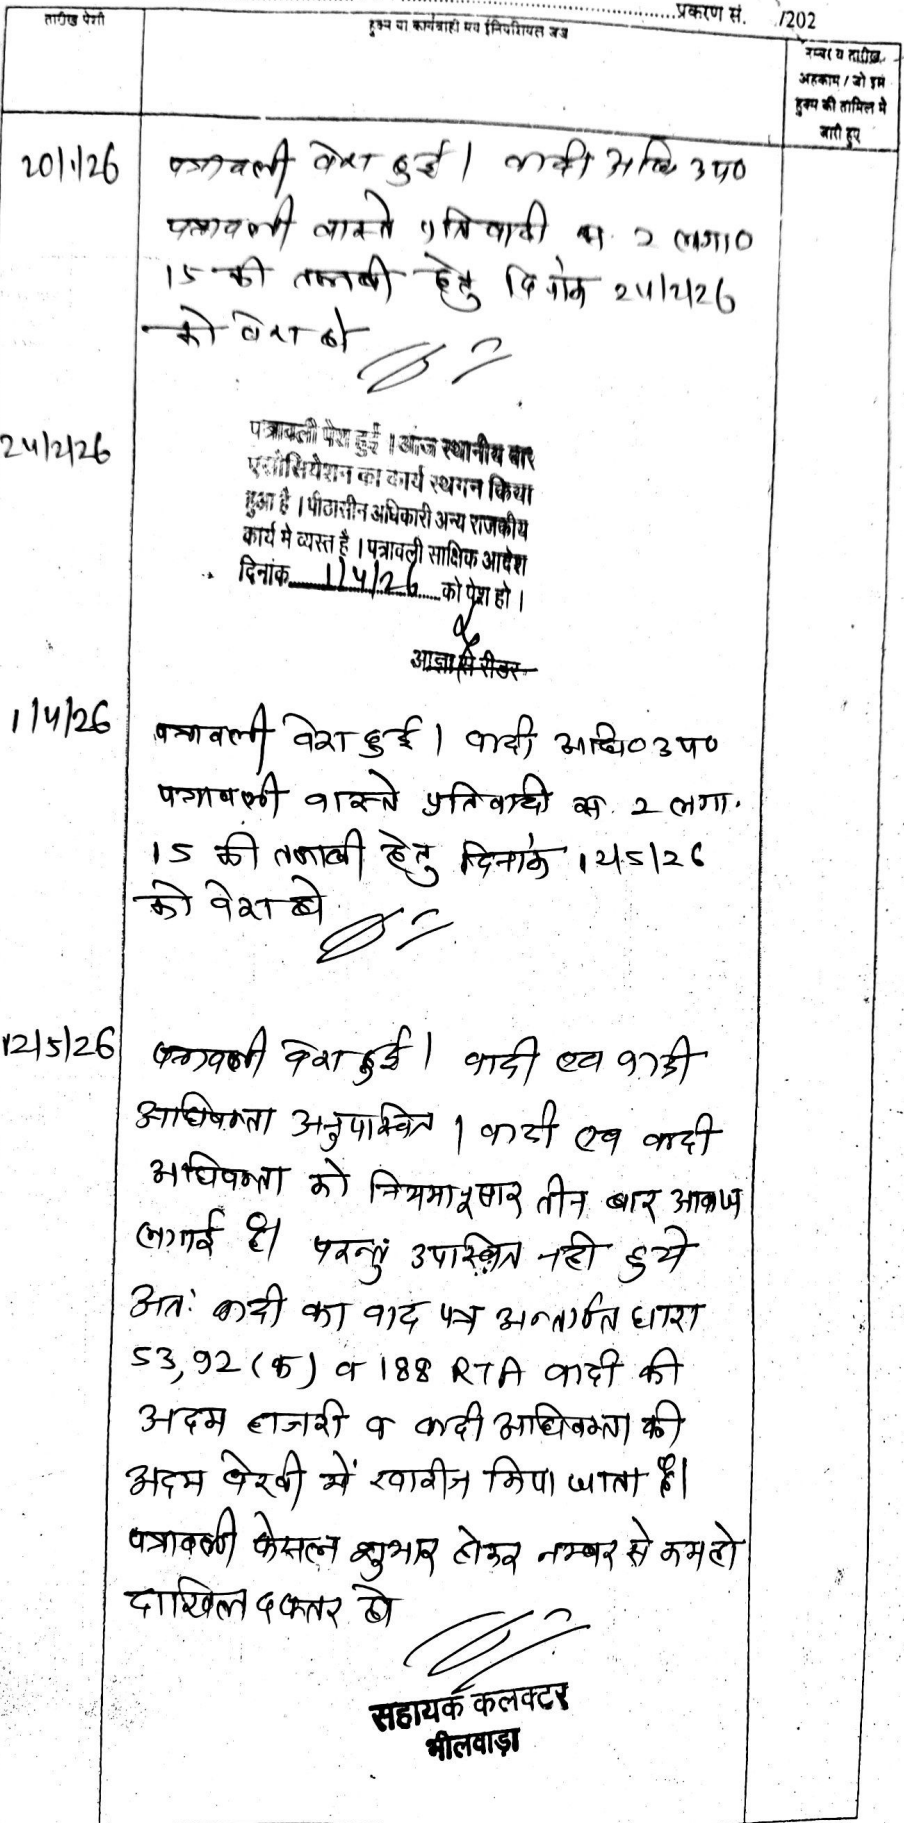 प्रकरण सं. /202
तारीख पेशी
हुक्म या कार्यवाही मय ईनिशियल जज
नम्बर व तारीख
अहकाम / जो इस
हुक्म की तामिल में
जारी हुए
20/1/26
पत्रावली पेश हुई। वादी अधि उप०
पत्रावली वास्ते प्रतिवादी स. 2 लगा०
15 की तलबी हेतु दिनांक 24/2/26
को पेश हो
24/2/26
पत्रावली पेश हुई । आज स्थानीय बार
एसोसियेशन का कार्य स्थगन किया
हुआ है । पीठासीन अधिकारी अन्य राजकीय
कार्य मे व्यस्त है । पत्रावली साक्षिक आदेश
दिनांक 1/4/26 को पेश हो ।
आज्ञा से रीडर
1/4/26
पत्रावली पेश हुई। वादी अधि० उप०
पत्रावली वास्ते प्रतिवादी स. 2 लगा.
15 की तलबी हेतु दिनांक 12/5/26
को पेश हो
12/5/26
पत्रावली पेश हुई। वादी एव वादी
अधिवक्ता अनुपस्थित। वादी एव वादी
अधिवक्ता को नियमानुसार तीन बार आवाज
लगाई है। परन्तु उपस्थित नही हुये
अतः वादी का वाद पत्र अन्तर्गत धारा
53,92(क) व 188 RTA वादी की
अदम हाजरी व वादी अधिवक्ता की
अदम पेरवी में खारीज किया जाता है।
पत्रावली फेसल शुमार होकर नम्बर से कम हो
दाखिल दफ्तर हो
सहायक कलक्टर
भीलवाड़ा